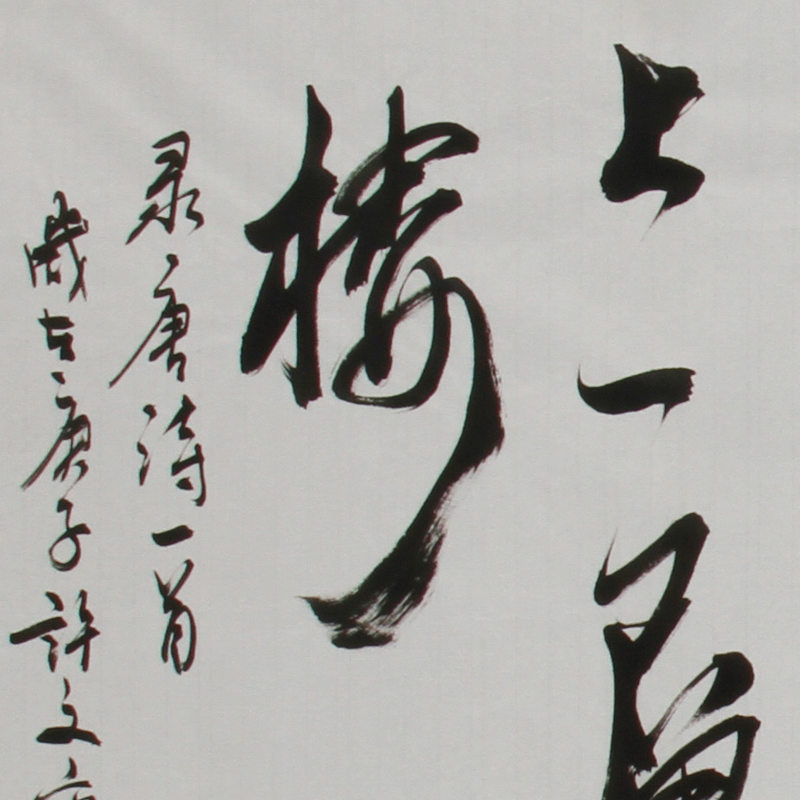 上一層
楼
录唐诗一首
歲在庚子許文